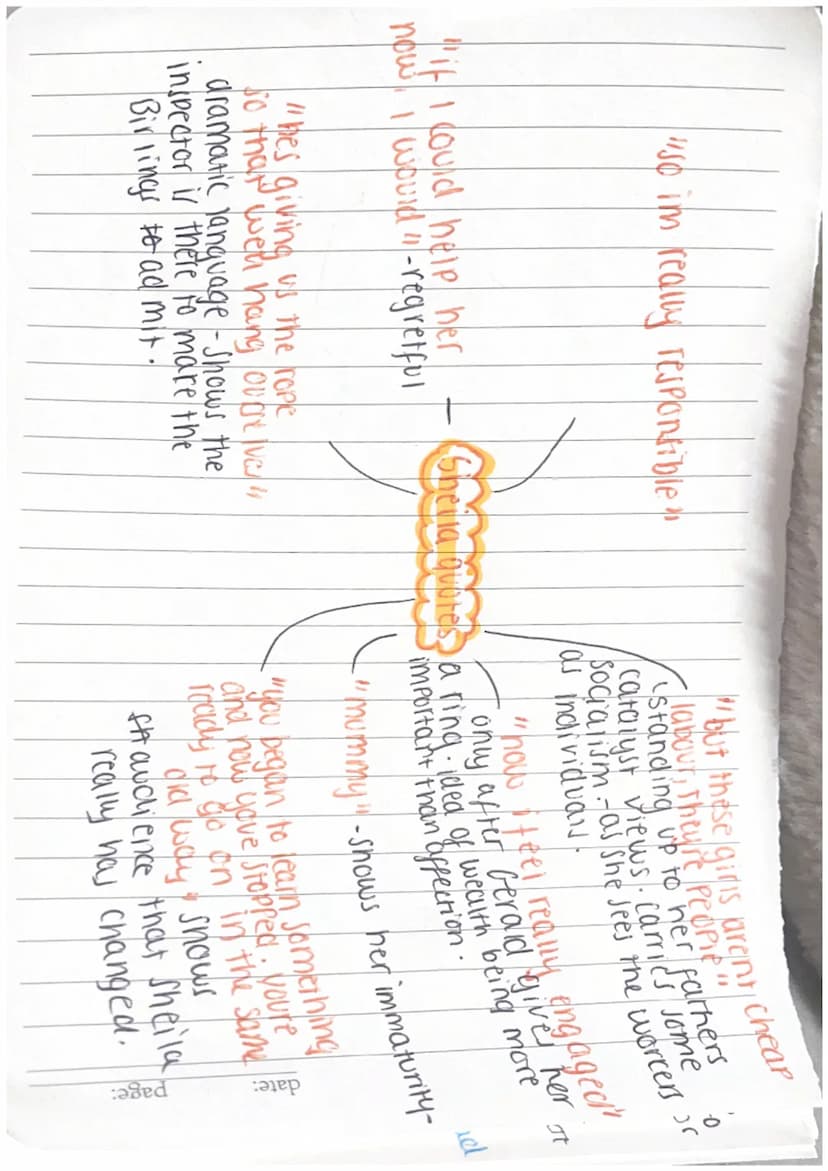 "so im really responsible"
"if I could help her
now, I would" -regretful
"hes giving us the rope
so that well hang ourselves"
dramatic language - shows the
inspector is there to make the
Birlings to admit.
Sheila quotes
"but these girls arent cheap
labour, they're people"
standing up to her farthers
catalyst views. carries some
socialism. - as she sees the workers
as individuals.
"now i feel really engaged"
only after Gerald gives her
a ring. idea of wealth being more
important than affection.
"mummy" -shows her immaturity-
"you began to learn something
and now youve stopped. youre
ready to go on in the same
old way" shows
audience that sheila
really has changed.
date:
page: